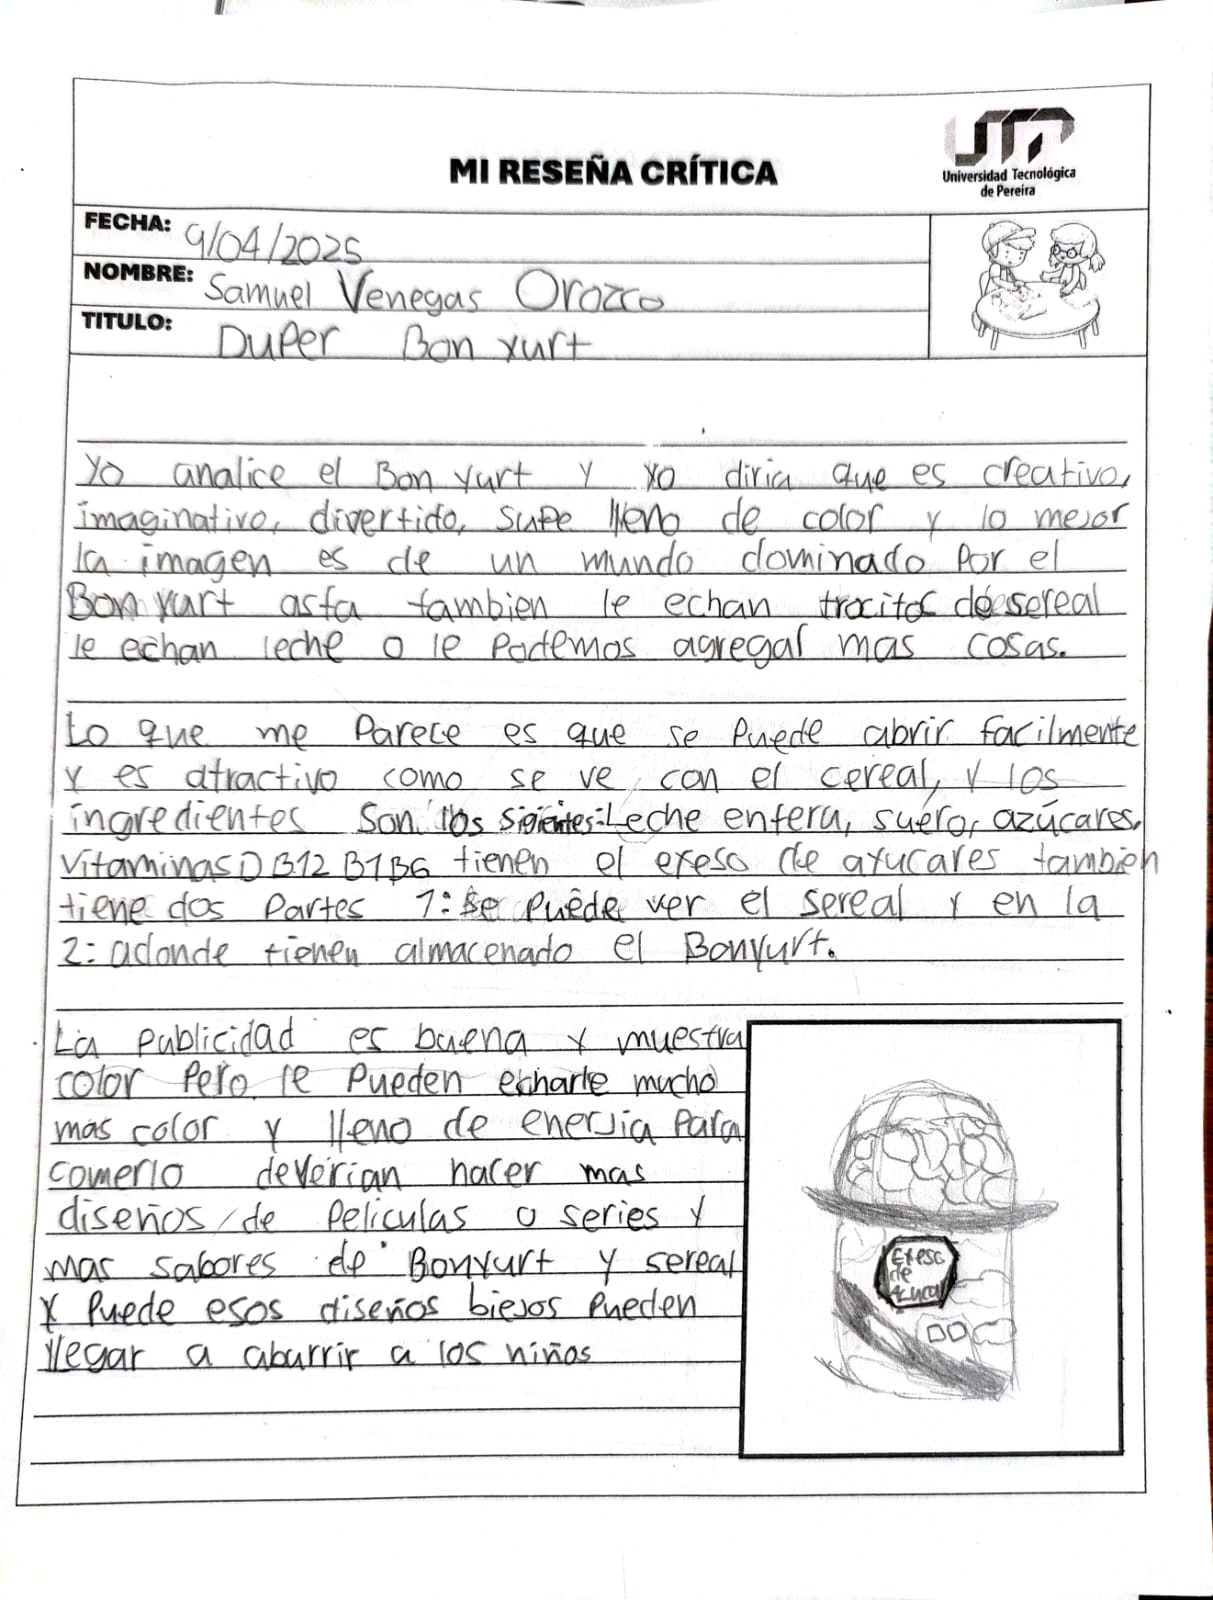 MI RESEÑA CRÍTICA
UTP
Universidad Tecnológica
de Pereira
FECHA: 9/04/2025
NOMBRE: Samuel Venegas Orozco
TITULO: Duper Bon yurt
Yo analice el Bon yurt y yo diria que es creativo,
imaginativo, divertido, supe lleno de color y lo mejor
la imagen es de un mundo dominado por el
Bon yurt asta tambien le echan trocitos de sereal
le echan leche o le podemos agregal mas cosas.
Lo que me parece es que se puede abrir facilmente
y es atractivo como se ve con el cereal, y los
ingredientes son los sigientes: Leche entera, suero, azúcares,
vitaminas D B12 B1 B6 tienen el exeso de azucares tambien
tiene dos partes 1: se puede ver el sereal y en la
2: adonde tienen almacenado el Bonyurt.
La publicidad es buena y muestra
color pero le pueden echarle mucho
mas color y lleno de enerjia para
comerlo deverian hacer mas
diseños de peliculas o series y
mas sabores de Bonyurt y sereal
y puede esos diseños biejos pueden
llegar a aburrir a los niños
Exeso
de
Azucar